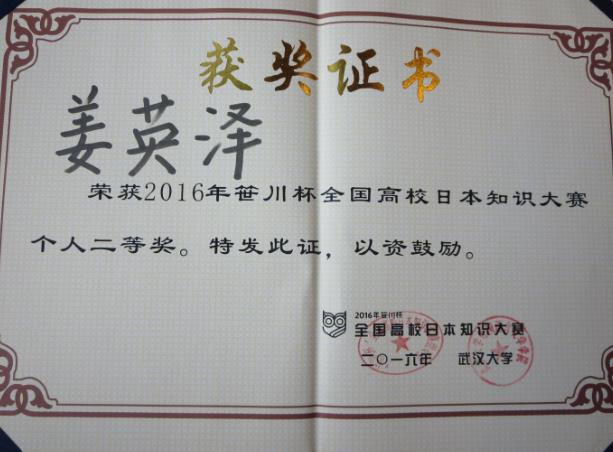 获奖证书
姜英泽
荣获2016年笹川杯全国高校日本知识大赛
个人二等奖。特发此证，以资鼓励。
2016年笹川杯
全国高校日本知识大赛
二〇一六年 武汉大学